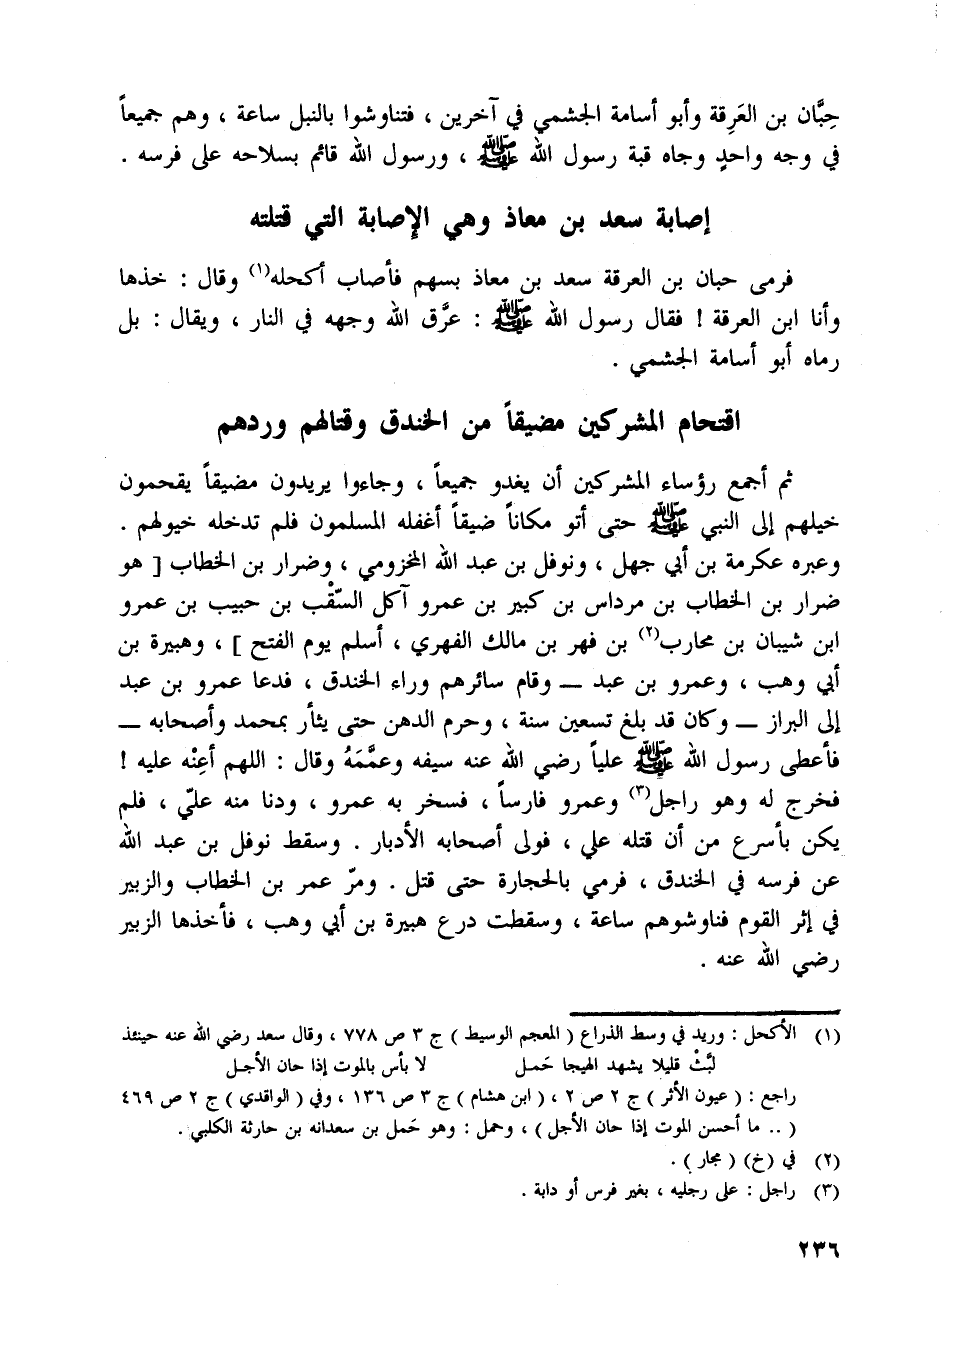 حِبَّان بن العَرِقة وأبو أسامة الجشمي في آخرين ، فتناوشوا بالنبل ساعة ، وهم جميعاً
في وجه واحدٍ وجاه قبة رسول الله ﷺ ، ورسول الله قائم بسلاحه على فرسه .
إصابة سعد بن معاذ وهي الإصابة التي قتلته
فرمى حبان بن العرقة سعد بن معاذ بسهم فأصاب أكحله(١) وقال : خذها
وأنا ابن العرقة ! فقال رسول الله ﷺ : عرَّق الله وجهه في النار ، ويقال : بل
رماه أبو أسامة الجشمي .
اقتحام المشركين مضيقاً من الخندق وقتالهم وردهم
ثم أجمع رؤساء المشركين أن يغدو جميعاً ، وجاءوا يريدون مضيقاً يقحمون
خيلهم إلى النبي ﷺ حتى أتو مكاناً ضيقاً أغفله المسلمون فلم تدخله خيولهم .
وعبره عكرمة بن أبي جهل ، ونوفل بن عبد الله المخزومي ، وضرار بن الخطاب [ هو
ضرار بن الخطاب بن مرداس بن كبير بن عمرو آكل السّقْب بن حبيب بن عمرو
ابن شيبان بن محارب(٢) بن فهر بن مالك الفهري ، أسلم يوم الفتح ] ، وهبيرة بن
أبي وهب ، وعمرو بن عبد ــ وقام سائرهم وراء الخندق ، فدعا عمرو بن عبد
إلى البراز ــ وكان قد بلغ تسعين سنة ، وحرم الدهن حتى يثأر بمحمد وأصحابه ــ
فأعطى رسول الله ﷺ علياً رضي الله عنه سيفه وعمَّمَهُ وقال : اللهم أعِنْه عليه !
فخرج له وهو راجل(٣) وعمرو فارساً ، فسخر به عمرو ، ودنا منه عليّ ، فلم
يكن بأسرع من أن قتله علي ، فولى أصحابه الأدبار . وسقط نوفل بن عبد الله
عن فرسه في الخندق ، فرمي بالحجارة حتى قتل . ومرّ عمر بن الخطاب والزبير
في إثر القوم فناوشوهم ساعة ، وسقطت درع هبيرة بن أبي وهب ، فأخذها الزبير
رضي الله عنه .
(١) الأكحل : وريد في وسط الذراع ( المعجم الوسيط ) ج ٣ ص ٧٧٨ ، وقال سعد رضي الله عنه حينئذ
لَبَّثْ قليلا يشهد الهيجا حَمل لا بأس بالموت إذا حان الأجل
راجع : ( عيون الأثر ) ج ٢ ص ٢ ، ( ابن هشام ) ج ٣ ص ١٣٦ ، وفي ( الواقدي ) ج ٢ ص ٤٦٩
( .. ما أحسن الموت إذا حان الأجل ) ، وحمل : وهو حَمل بن سعدانه بن حارثة الكلبي .
(٢) في (خ) ( مجار ) .
(٣) راجل : على رجليه ، بغير فرس أو دابة .
٢٣٦